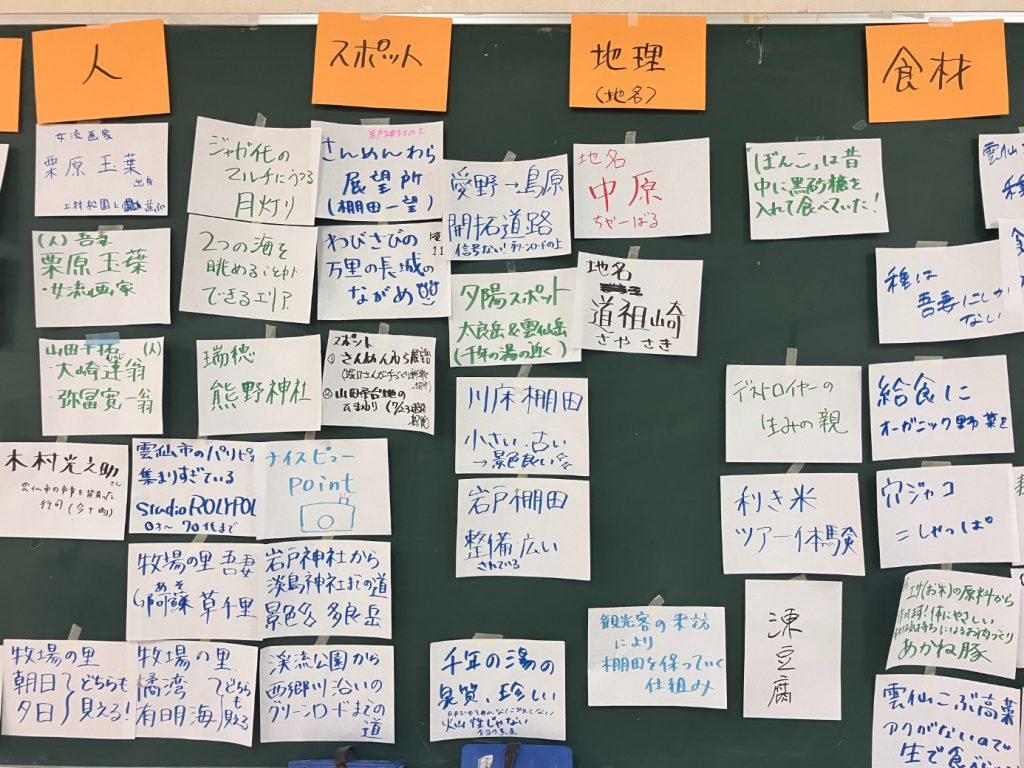 人
スポット
地理
(地名)
食材
女流画家
栗原 玉葉
出身
上村松園と
(人) 吾妻
栗原 玉葉
・女流画家
山田千拓 (人)
・大崎達翁
・弥冨寛一翁
木村光之助
さん
行司(今十両)
ジャガ花の
マルチにうつる
月灯り
2つの海を
眺めることが
できるエリア
瑞穂
熊野神社
雲仙市のパリピ
集まりすぎている
Studio ROLYPOLY
0才〜70代まで
牧場の里 吾妻
あそ
阿蘇 草千里
牧場の里
朝日
夕日
どちらも
見える!
牧場の里
橘湾
有明海
どちら
も
見える
さんめんわら
展望所
(棚田一望)
わびさびの
万里の長城の
ながめ
スポット
① さんめんわら展望
ナイスビュー
point
岩戸神社から
淡島神社までの道
景色多 多良岳
渓流公園から
西郷川沿いの
グリーンロードまでの
道
愛野→島原
開拓道路
信号ない!グリーンロードの上
夕陽スポット
太良岳&雲仙岳
(千年の湯の近く)
川床棚田
小さい、古い
→景色良い
岩戸棚田
整備広い
されている
千年の湯の
泉質、珍しい
火山性じゃない
地名
中原
ちゃーばる
地名
道祖崎
さや さき
観光客の来訪
により
棚田を保っていく
仕組み
「ぼんこ」は昔
中に黒砂糖を
入れて食べていた!
デストロイヤーの
生みの親
利き米
ツアー体験
凍豆腐
雲仙
種
種は
吾妻にしか
ない
給食に
オーガニック野菜を
穴ジャコ
こしゃっぱ
エサ(お米)の原料から
体にやさしい
あかね豚
雲仙こぶ高菜
アクがないので
生で食べ